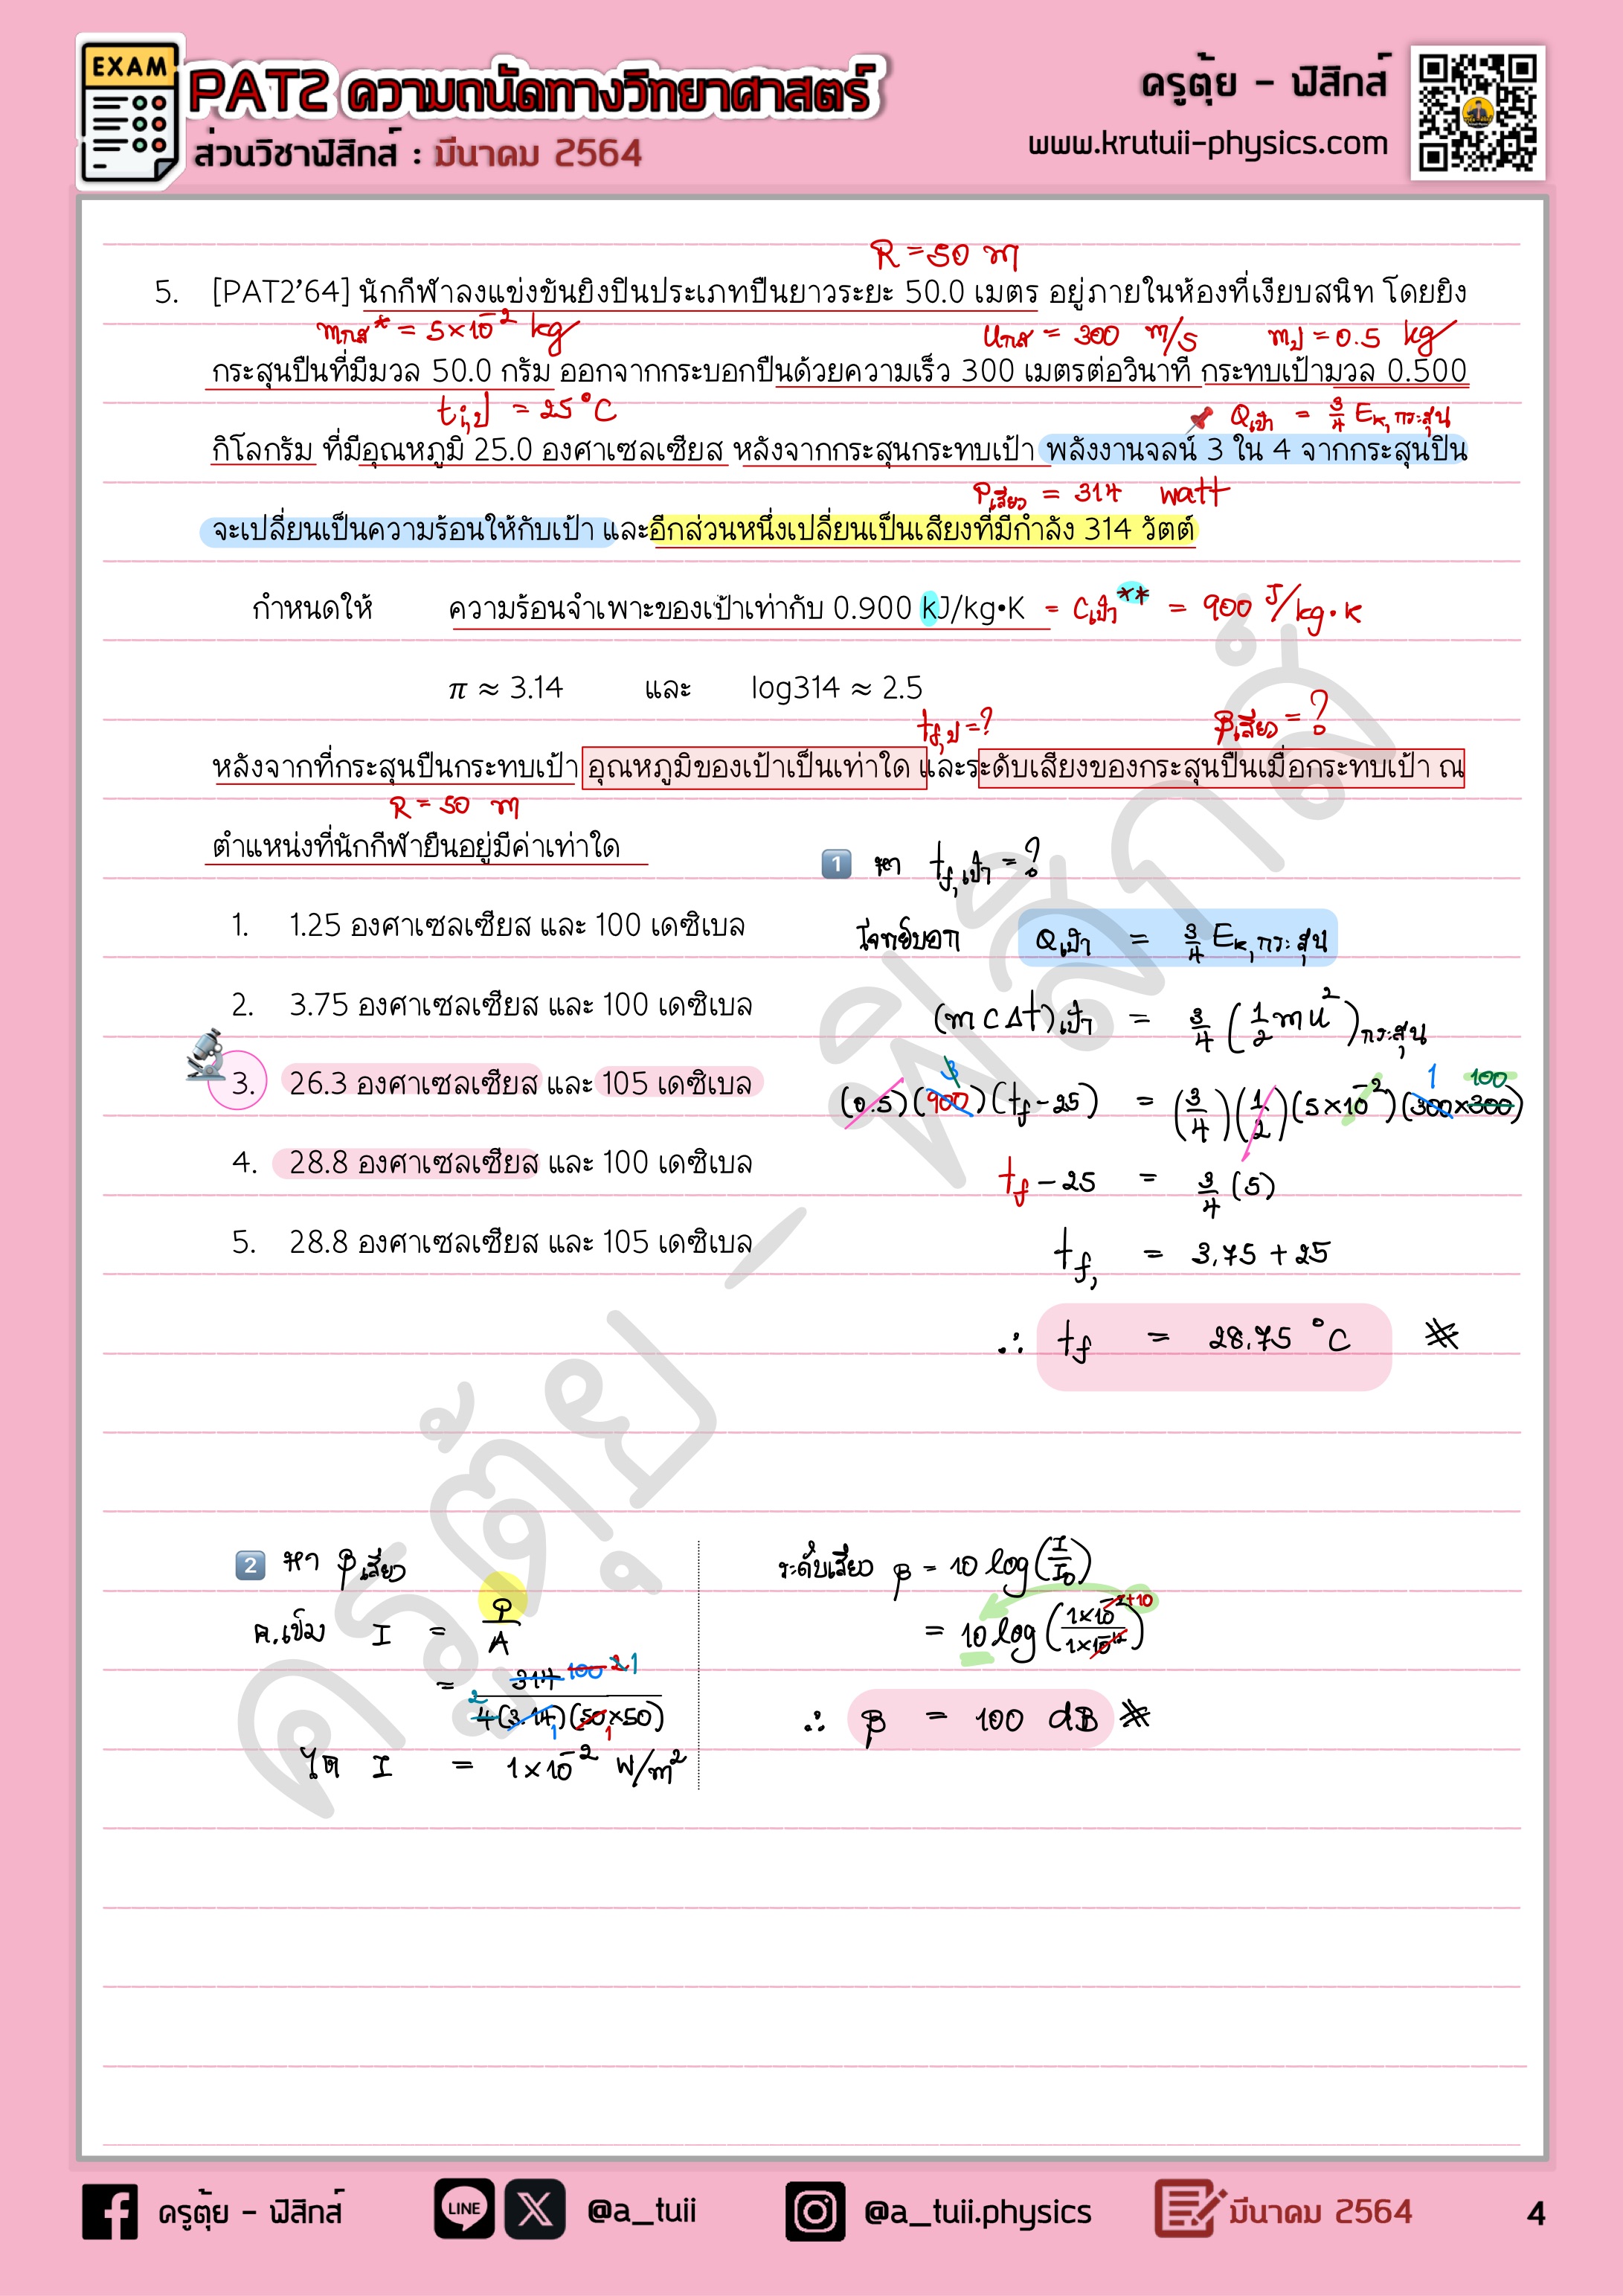 EXAM
PAT2 ความถนัดทางวิทยาศาสตร์
ส่วนวิชาฟิสิกส์ : มีนาคม 2564
ครูตุ้ย - ฟิสิกส์
www.krutuii-physics.com
R = 50 m
5. [PAT2'64] นักกีฬาลงแข่งขันยิงปืนประเภทปืนยาวระยะ 50.0 เมตร อยู่ภายในห้องที่เงียบสนิท โดยยิง
mกส* = 5×10⁻² kg uกส = 300 m/s mป = 0.5 kg
กระสุนปืนที่มีมวล 50.0 กรัม ออกจากกระบอกปืนด้วยความเร็ว 300 เมตรต่อวินาที กระทบเป้ามวล 0.500
ti,ป = 25 °C Qเป้า = 3/4 Ek,กระสุน
กิโลกรัม ที่มีอุณหภูมิ 25.0 องศาเซลเซียส หลังจากกระสุนกระทบเป้า พลังงานจลน์ 3 ใน 4 จากกระสุนปืน
Pเสียง = 314 watt
จะเปลี่ยนเป็นความร้อนให้กับเป้า และอีกส่วนหนึ่งเปลี่ยนเป็นเสียงที่มีกำลัง 314 วัตต์
กำหนดให้ ความร้อนจำเพาะของเป้าเท่ากับ 0.900 kJ/kg•K = Cเป้า** = 900 J/kg·K
π ≈ 3.14 และ log314 ≈ 2.5
tf,ป = ? βเสียง = ?
หลังจากที่กระสุนปืนกระทบเป้า อุณหภูมิของเป้าเป็นเท่าใด และระดับเสียงของกระสุนปืนเมื่อกระทบเป้า ณ
R = 50 m
ตำแหน่งที่นักกีฬายืนอยู่มีค่าเท่าใด
1. 1.25 องศาเซลเซียส และ 100 เดซิเบล
2. 3.75 องศาเซลเซียส และ 100 เดซิเบล
3. 26.3 องศาเซลเซียส และ 105 เดซิเบล
4. 28.8 องศาเซลเซียส และ 100 เดซิเบล
5. 28.8 องศาเซลเซียส และ 105 เดซิเบล
1 หา tf,เป้า = ?
โจทย์บอก Qเป้า = 3/4 Ek,กระสุน
(mcΔt)เป้า = 3/4 (1/2 mu²)กระสุน
3 1 100
(0.5)(900)(tf - 25) = (3/4)(1/2)(5×10⁻²)(300×300)
tf - 25 = 3/4 (5)
tf, = 3.75 + 25
∴ tf = 28.75 °C
2 หา βเสียง
ค.เข้ม I = P/A
= 314 100 2 1
2 4(3.14)(50×50) 1 1
ได้ I = 1×10⁻² W/m²
ระดับเสียง β = 10 log(I/I₀)
= 10 log(1×10⁻²⁺¹⁰/1×10⁻¹²)
∴ β = 100 dB
ครูตุ้ย - ฟิสิกส์
ครูตุ้ย - ฟิสิกส์
LINE
@a_tuii
@a_tuii.physics
มีนาคม 2564
4